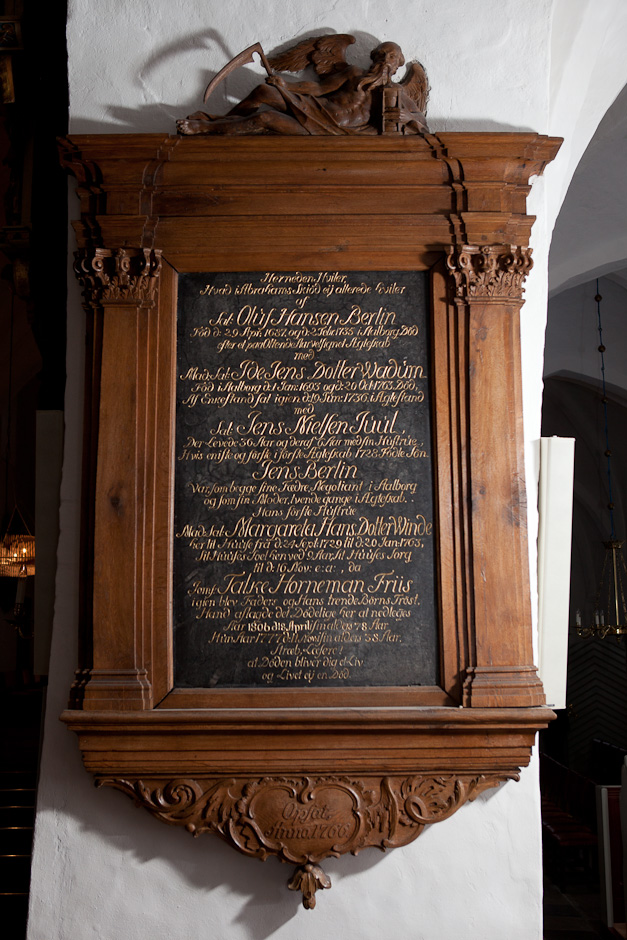 Herneden Hviler,
Hvad i Abrahams Skiöd eÿ allerede hviler
af
Sal: Oluf Hansen Berlin
Föd d: 29 Apr: 1687, og d: 2 Febr: 1735 i Aalborg Död
efter et paa Ottende Aar velsignet Ægteskab
med
Mad: Sal: Ide Jens Dotter Wadum
Föd i Aalborg d 1 Jan: 1695 og d: 26 Oct 1763 Död,
Af Enkestand sat igien d: 19 Jan: 1736, i Ægtestand
med
Sal: Jens Nielsen Juul,
Der Levede 56 Aar og deraf 6 Aar med sin Hustrue,
Hvis eniste og först i förste Ægteskab 1728 Födte Sön
Jens Berlin
Var, som begge sine Fædre Negotiant i Aalborg
og som sin Moder, tvende gange i Ægteskab.
Hans förste Hustrue
Mad: Sal: Margareta Hans Dotter Winde
var til Huuse fra d: 24 Sept: 1729 til d: 20 Jan: 1765,
til d: 16 Nov: e: a:, da
Jomf: Talke Horneman Friis
igien blev Faders og Hans trende Börns Tröst.
Hand aflagde det Dödelige her at nedleges
Aar 1806 d 18 April i sin alders 78 Aar
Hun Aar 1777 i sin alders 38 Aar,
Stræb, Læsere!
at Döden bliver dig et Liv
og Livet eÿ en Död.
Opsat
Anno 1766